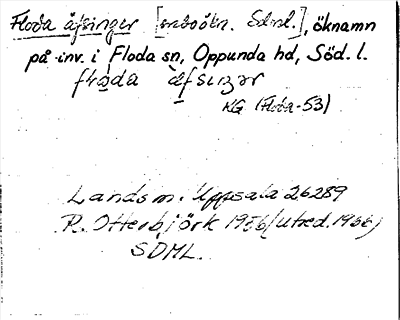 Floda åfsingar [snboökn. Sdml.], öknamn
på inv. i Floda sn, Oppunda hd, Söd. l.
KG (Floda-53)
Landsm. Uppsala 26289
R. Otterbjörk 1956 (utred. 1956)
SDML.